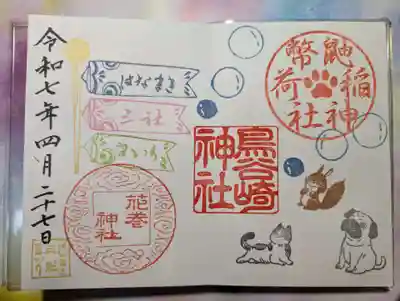 鼬稲神
幣荷社
鳥谷崎
神社
はなまき
三社
まいり
花巻
神社
令和七年四月二十七日